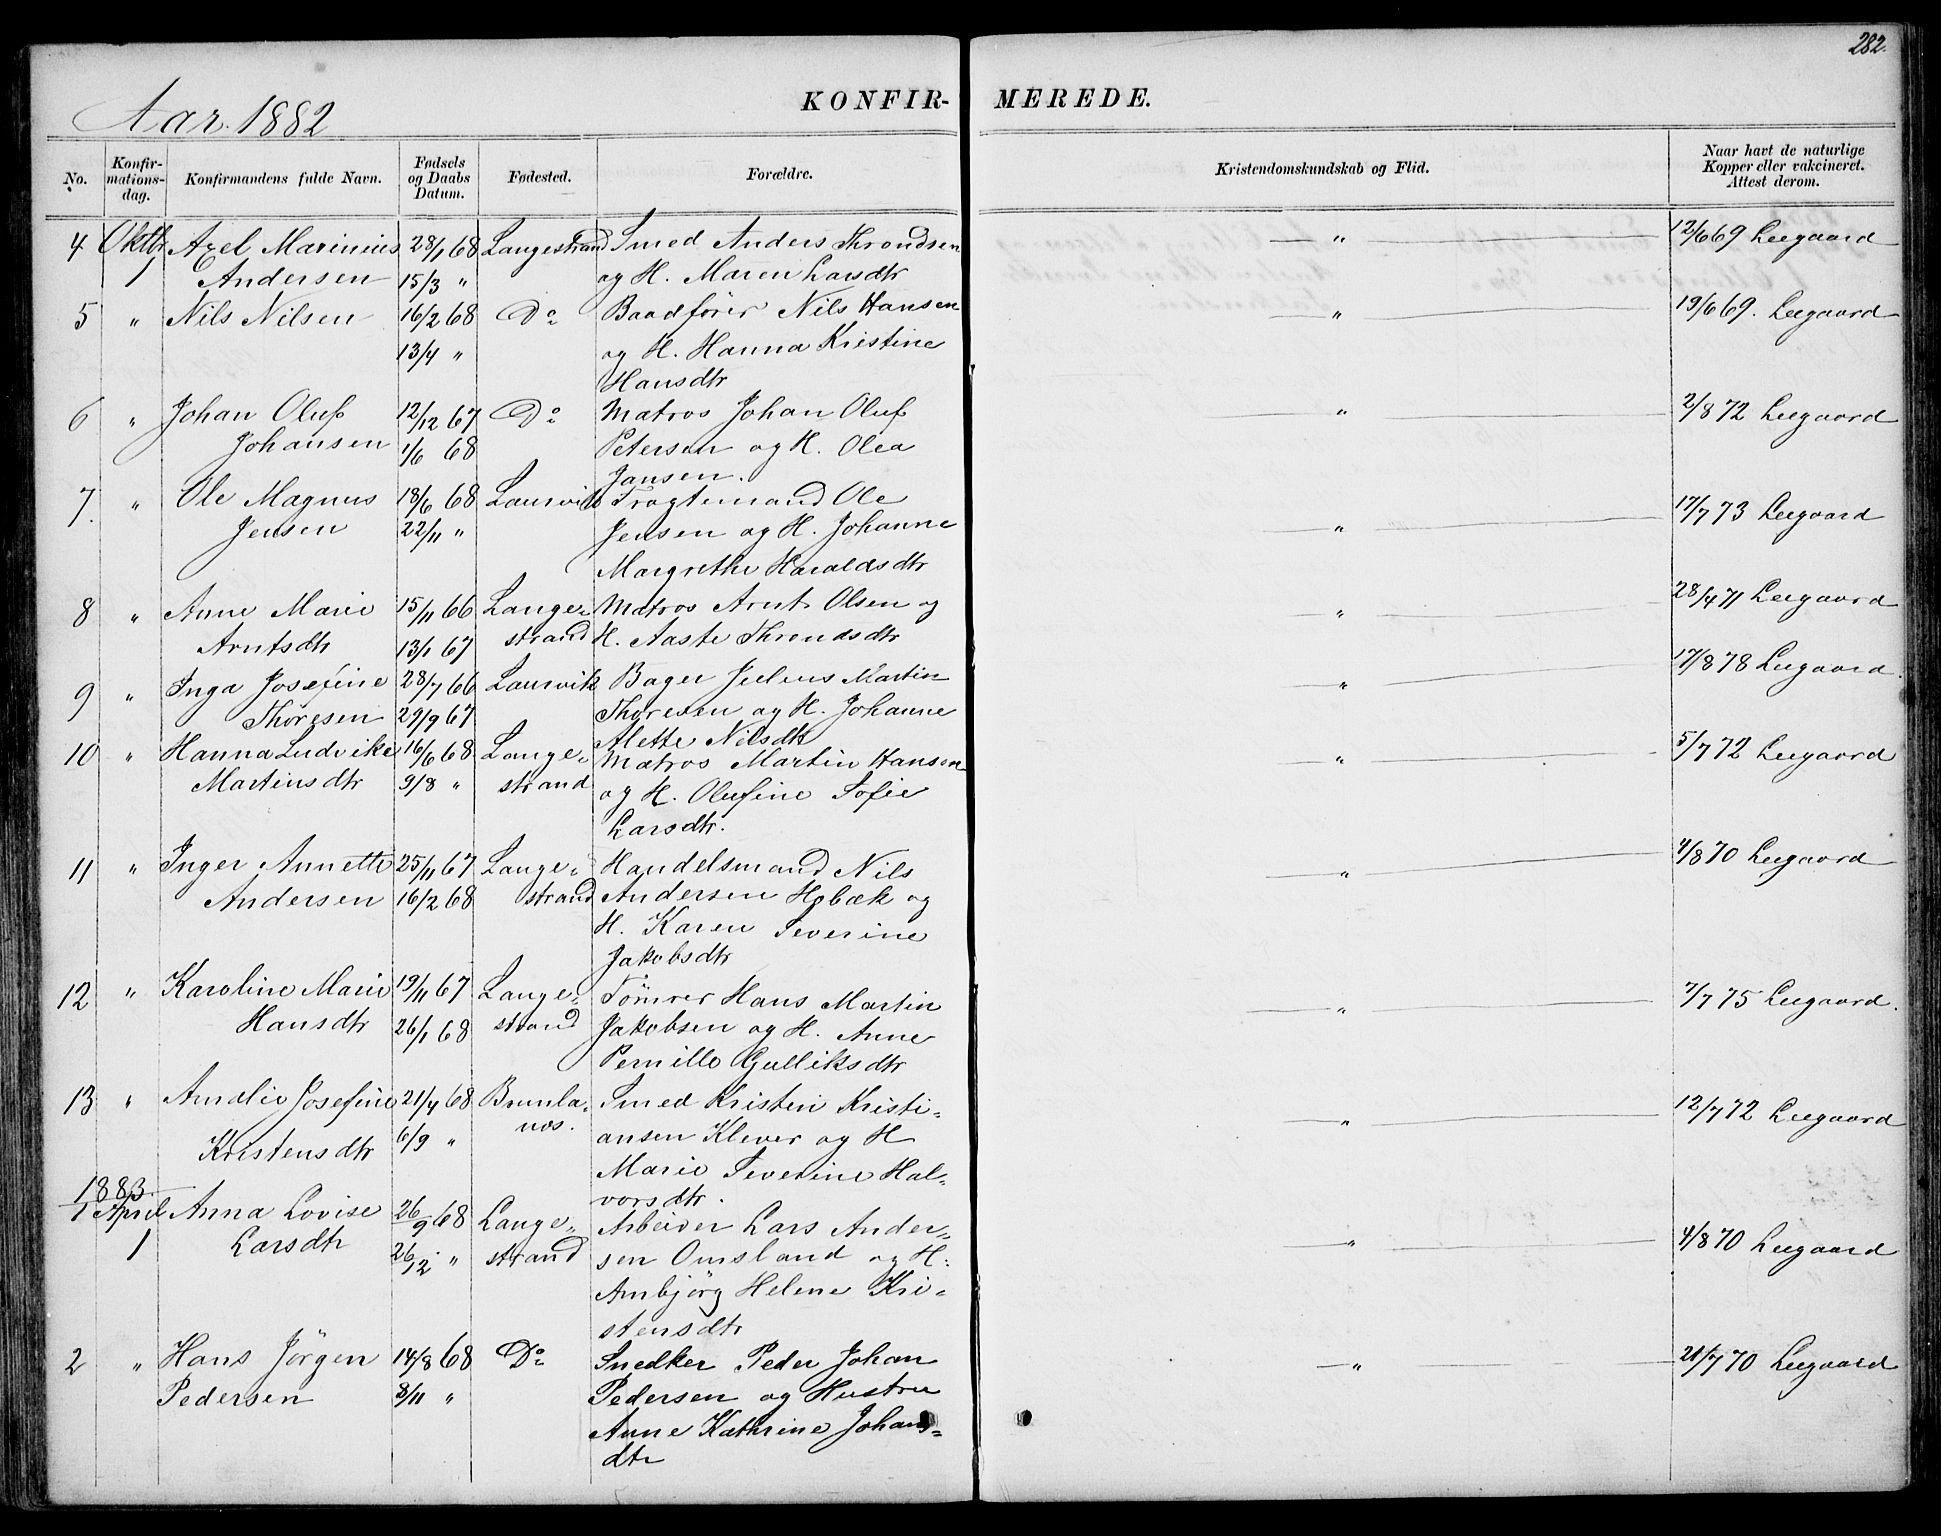 282.
Aar 1882
KONFIR- MEREDE.
No.
Konfir-
mations-
dag.
Konfirmandens fulde Navn.
Fødsels
og Daabs
Datum.
Fødested.
Forældre.
Kristendomskundskab og Flid.
Naar havt de naturlige
Kopper eller vakcineret.
Attest derom.
4 Oktbr Axel Marinius 28/1 68 Langestrand Smed Anders Throndsen — " — 12/6 69 Leegaard
1 Andersen 15/3 " og H. Maren Larsdtr
5 " Nils Nilsen 16/2 68 Do Baadfører Nils Hansen — " — 19/6 69. Leegaard
13/4 " og H. Hanna Kristine
Hansdtr
6 " Johan Oluf 12/12 67 Do Matros Johan Oluf — " — 2/8 72 Leegaard
Johansen 1/6 68 Petersen og H. Olea
Jansen.
7. " Ole Magnus 18/6 68 Laurvik Fragtemand Ole — " — 17/7 73 Leegaard
Jensen 22/11 " Jensen og H. Johanne
Margrethe Haraldsdtr
8 " Anne Marie 15/11 66 Lange- Matros Arnt Olsen og — " — 28/4 71 Leegaard
Arntsdtr 13/1 67 strand H. Aaste Throndsdtr
9 " Inga Josefine 28/7 66 Laurvik Bager Julius Martin — " — 17/8 78 Leegaard.
Thoresen 29/9 67 Thoresen og H. Johanne
Alette Nilsdtr
10 " Hanna Ludvike 16/6 68 Lange- Matros Martin Hansen — " — 5/7 72 Leegaard
Martinsdtr 9/8 " strand og H. Olufine Sofie
Larsdtr.
11 " Inger Annette 25/11 67 Lange- Handelsmand Nils — " — 4/8 70 Leegaard
Andersen 16/2 68 strand Andersen Hobæk og
H. Karen Severine
Jakobsdtr
12 " Karoline Marie 19/11 67 Lange- Tömrer Hans Martin — " — 7/7 75 Leegaard.
Hansdtr 26/1 68 strand Jakobsen og H. Anne
Pernille Gulliksdtr
13 " Amalie Josefine 21/4 68 Brunla- Smed Kristen Kristi- — " — 12/7 72 Leegaard
Kristensdtr 6/9 " næs. ansen Klever og H
Marie Severine Hal-
vorsdtr.
1883.
1 April Anna Lovise 26/9 68 Lange- Arbeider Lars Ander- — " — 4/8 70 Leegaard
1 Larsdtr 26/12 " strand sen Omsland og H.
Ambjörg Helene Kri-
stensdtr
2 " Hans Jörgen 14/8 68 Do Snedker Peder Johan — " — 21/7 70 Leegaard
Pedersen 8/11 " Pedersen og Hustru
Anne Kathrine Johans-
dtr